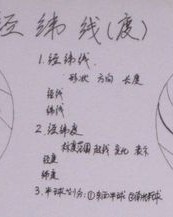 经纬线(度)
1.经纬线.
形状 方向 长度
经线
纬线
2.经纬度
标度范围 起线 变化 表示
经度
纬度
3.半球划分: ①东西半球 ②南北半球